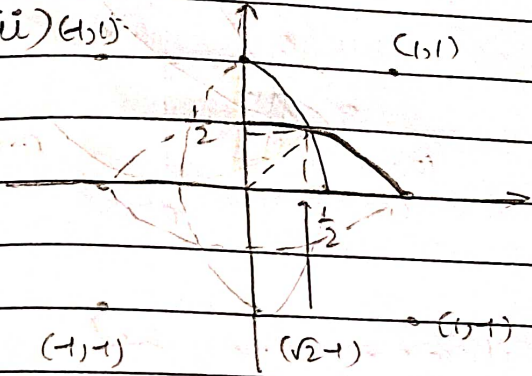 ii) (-1,1) (1,1)
1/2
1/2
(-1,-1) (√2-1) (1,-1)